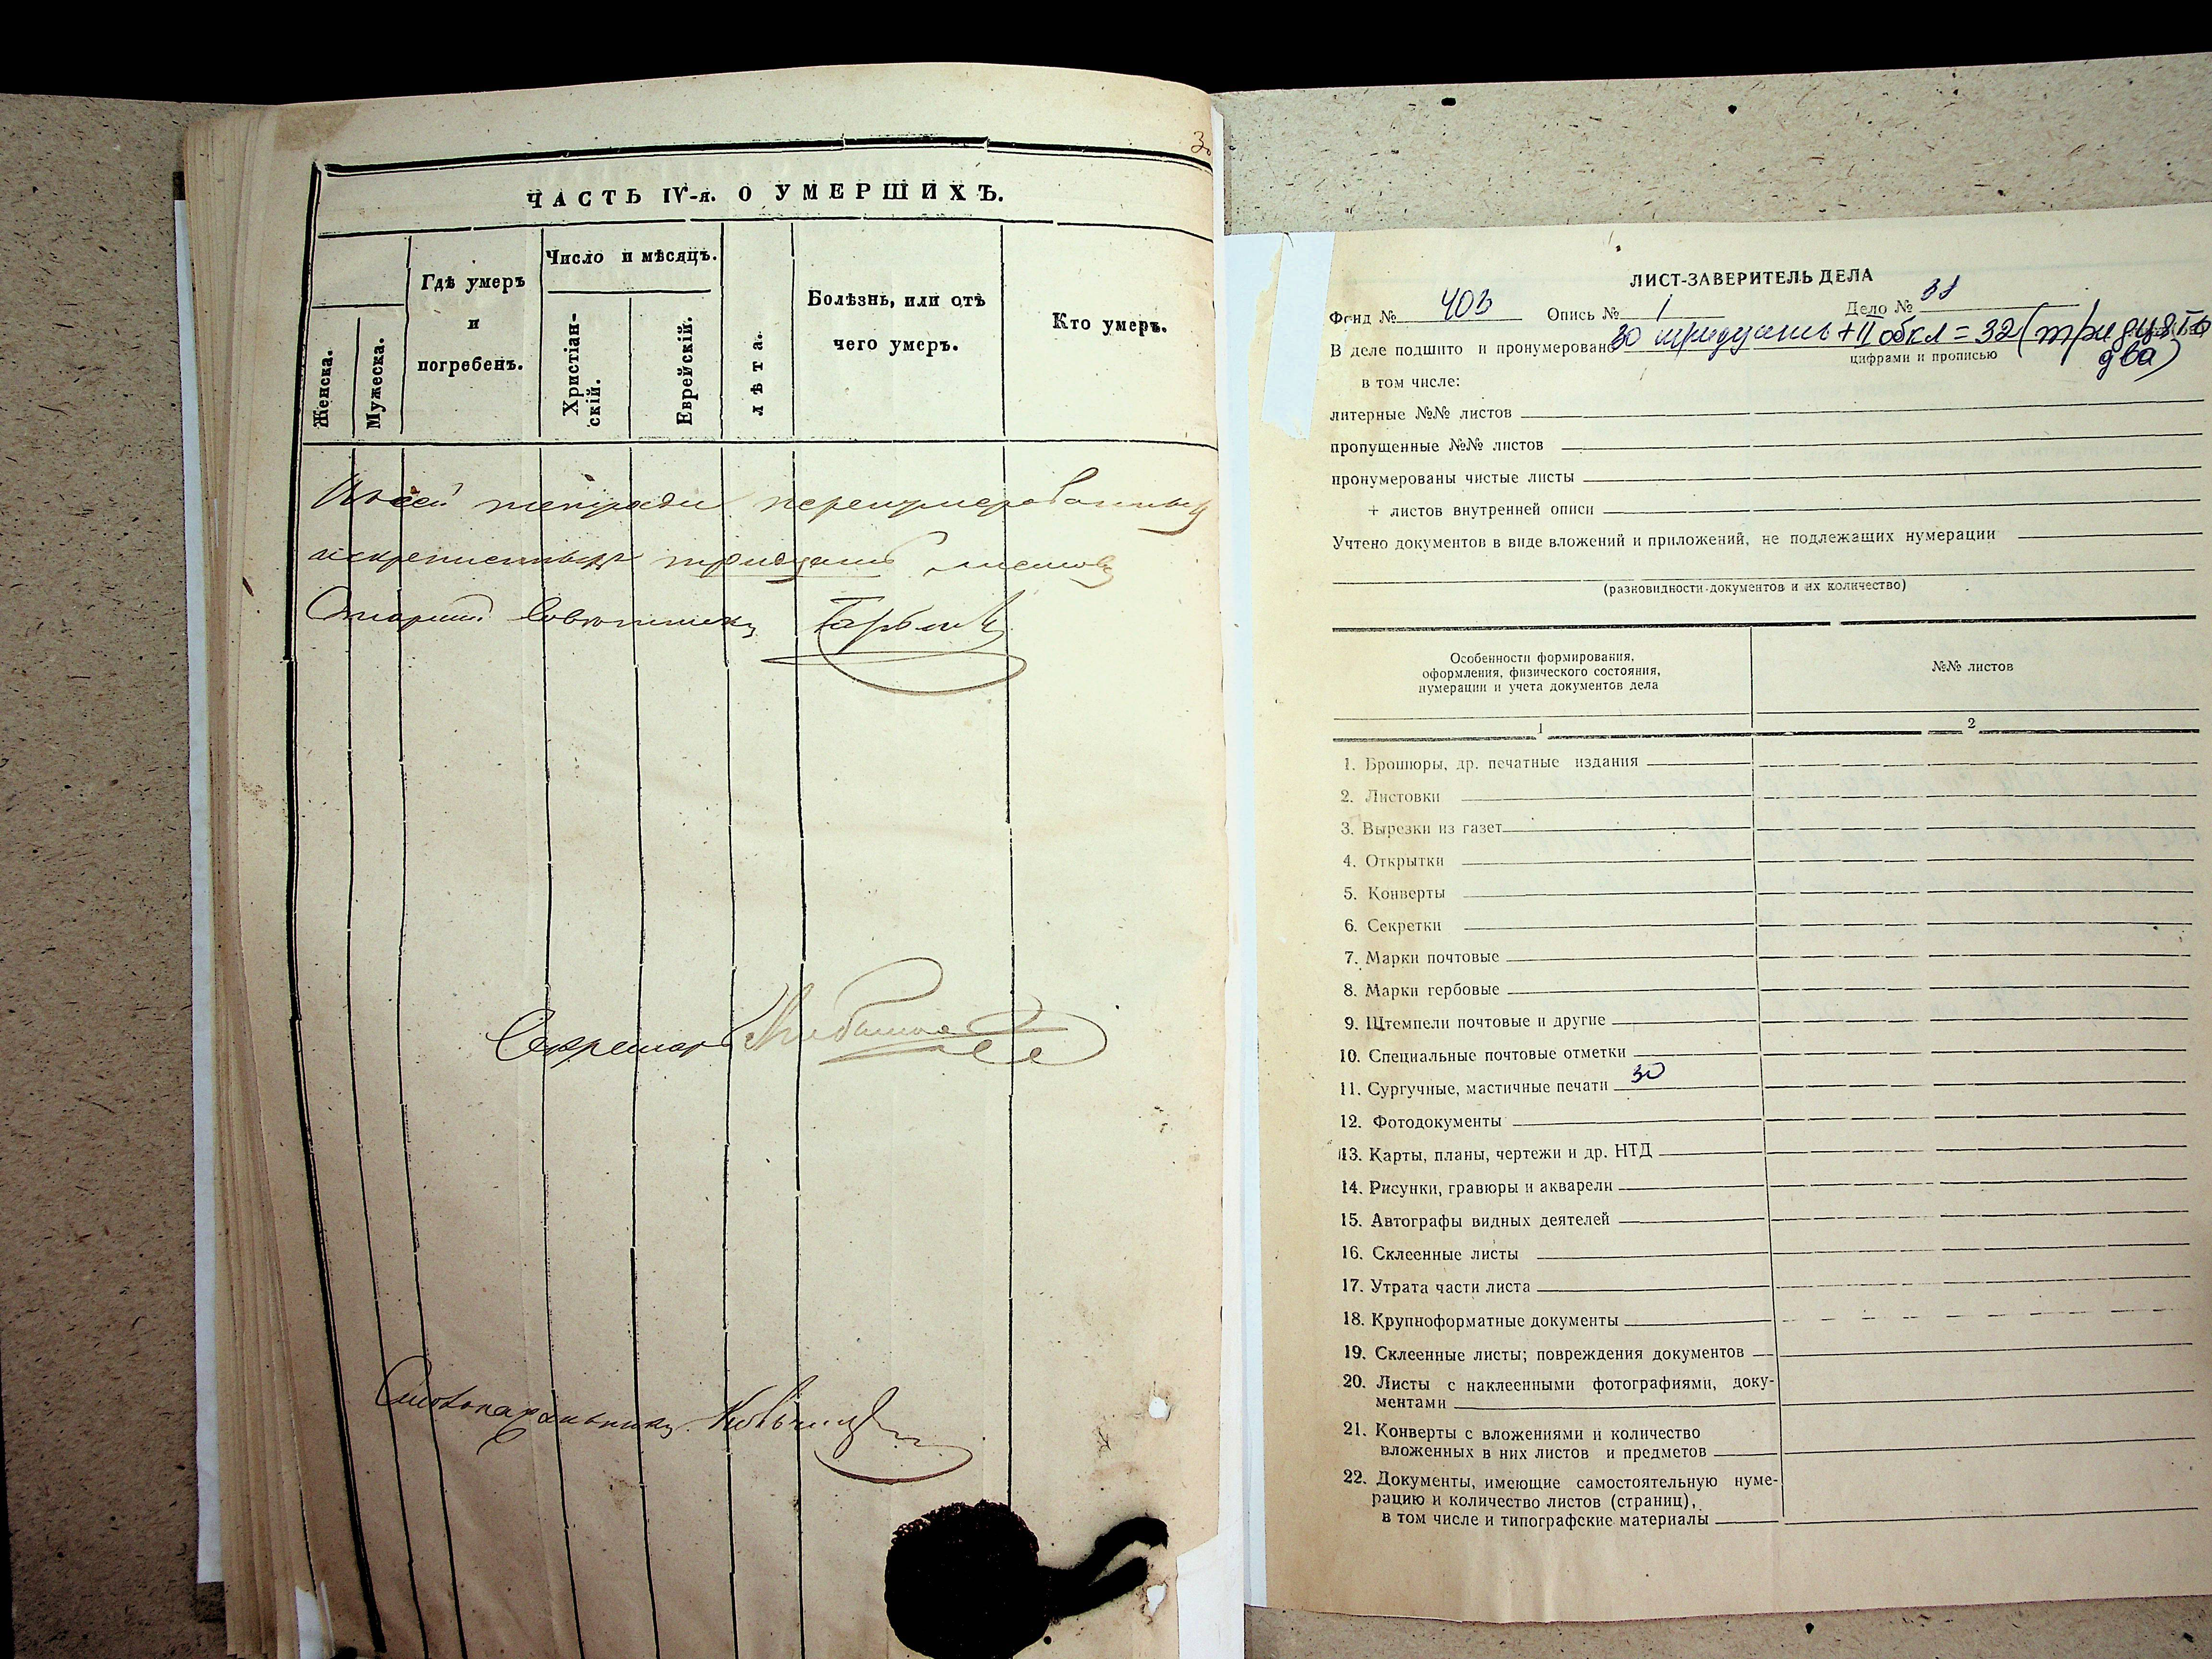 3
ЧАСТЬ IV-я. О УМЕРШИХЪ.
Женска.
Мужеска.
Гдѣ умеръ
и
погребенъ.
Число и мѣсяцъ.
Христіан-
скій.
Еврейскій.
лѣта.
Болѣзнь, или отъ
чего умеръ.
Кто умеръ.
тетради перенумерованныхъ
тридцать листовъ
Старший Совѣтникъ
Секретарь
Столоначальникъ
ЛИСТ-ЗАВЕРИТЕЛЬ ДЕЛА
Фонд № 403 Опись № 1 Дело № 31
В деле подшито и пронумеровано 30 тридцать + II обкл = 32 (тридцать
два)
цифрами и прописью
в том числе:
литерные №№ листов
пропущенные №№ листов
пронумерованы чистые листы
+ листов внутренней описи
Учтено документов в виде вложений и приложений, не подлежащих нумерации
(разновидности документов и их количество)
Особенности формирования,
оформления, физического состояния,
нумерации и учета документов дела
№№ листов
1
2
1. Брошюры, др. печатные издания
2. Листовки
3. Вырезки из газет
4. Открытки
5. Конверты
6. Секретки
7. Марки почтовые
8. Марки гербовые
9. Штемпели почтовые и другие
10. Специальные почтовые отметки
11. Сургучные, мастичные печати 30
12. Фотодокументы
13. Карты, планы, чертежи и др. НТД
14. Рисунки, гравюры и акварели
15. Автографы видных деятелей
16. Склеенные листы
17. Утрата части листа
18. Крупноформатные документы
19. Склеенные листы; повреждения документов
20. Листы с наклеенными фотографиями, доку-
ментами
21. Конверты с вложениями и количество
вложенных в них листов и предметов
22. Документы, имеющие самостоятельную нуме-
рацию и количество листов (страниц),
в том числе и типографские материалы